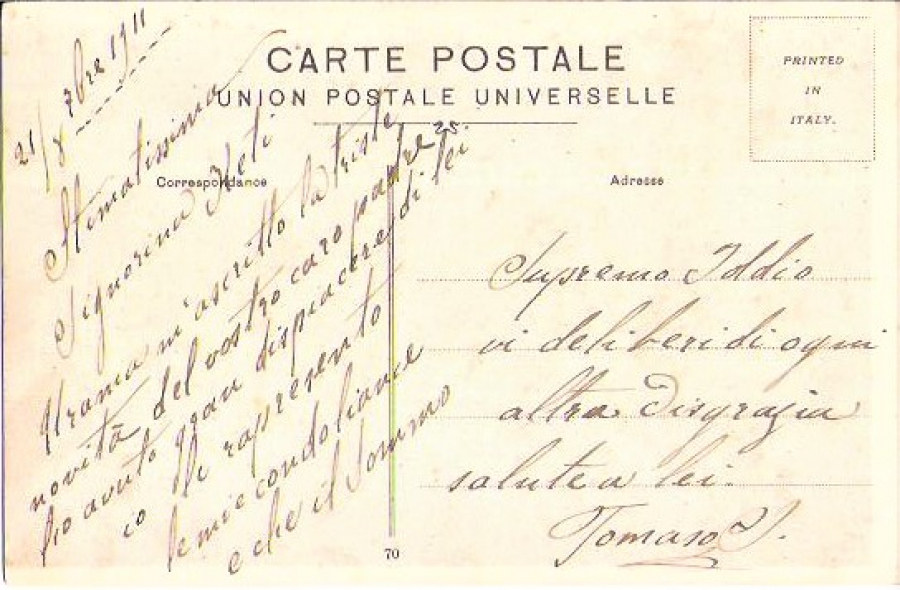 CARTE POSTALE
UNION POSTALE UNIVERSELLE
PRINTED
IN
ITALY.
Correspondance
Adresse
21/8 7bre 1911
Stimatissima
Signorina Keti
Urania m'ascritto la triste
novità del vostro caro padre
ho avuto gran dispiacere di lei
io le rapresento
le mie condolianze
e che il Sommo
Supremo Iddio
vi deliberi di ogni
altra Disgrazia
salute a lei.
Tomaso S.
70